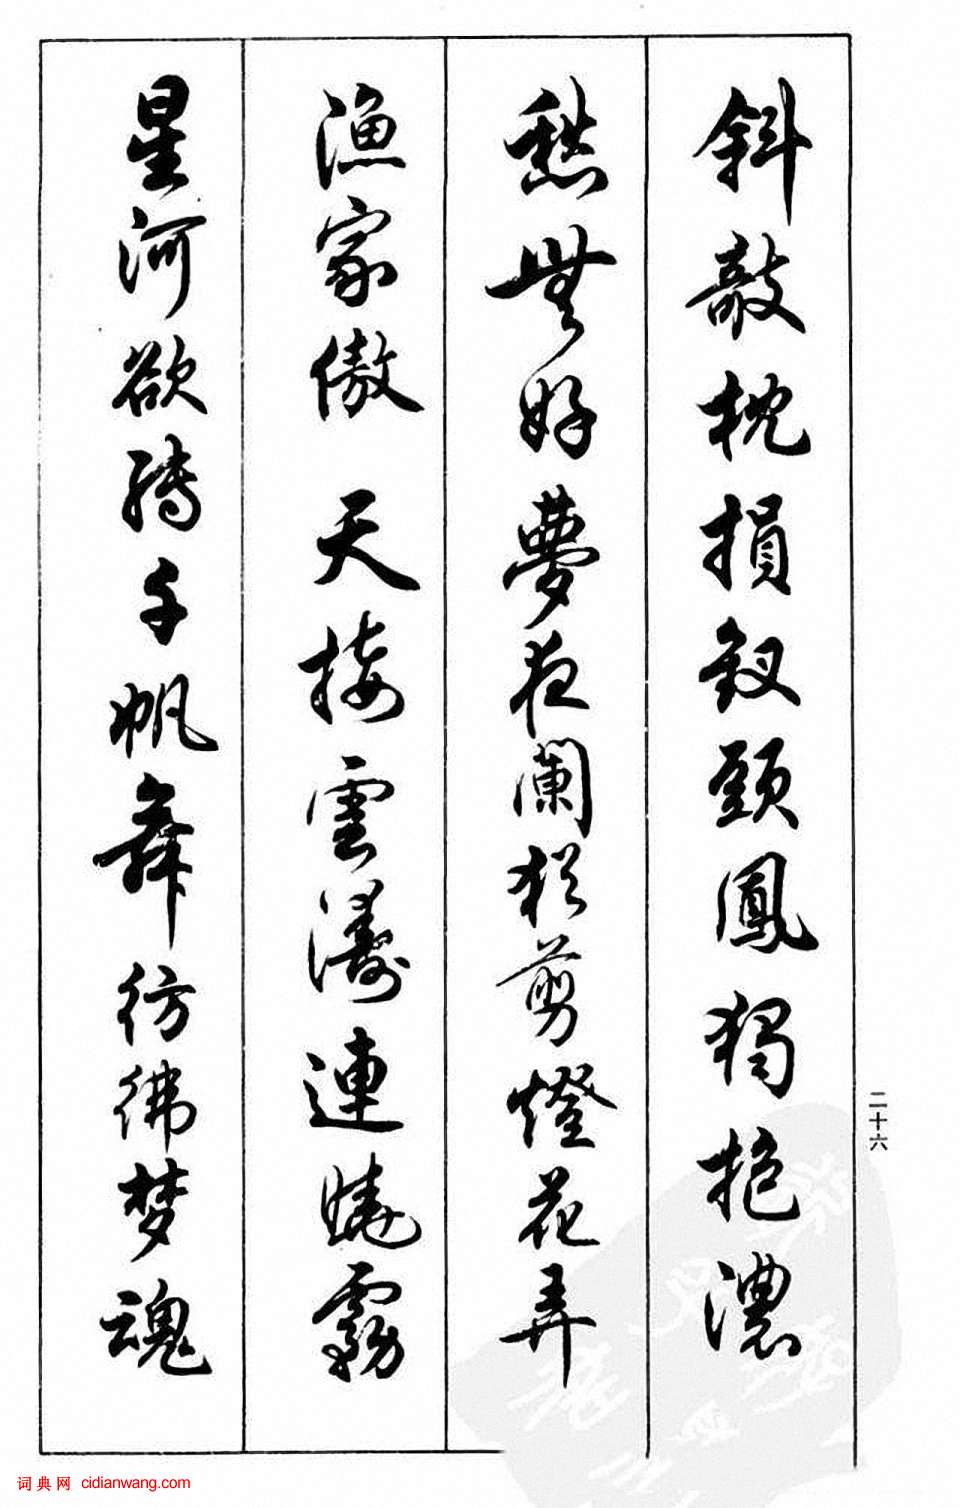 斜敧枕損釵頭鳳獨抱濃
愁無好夢夜闌猶剪燈花弄
漁家傲 天接雲濤連曉霧
星河欲轉千帆舞彷彿梦魂
二十六
词典网 cidianwang.com